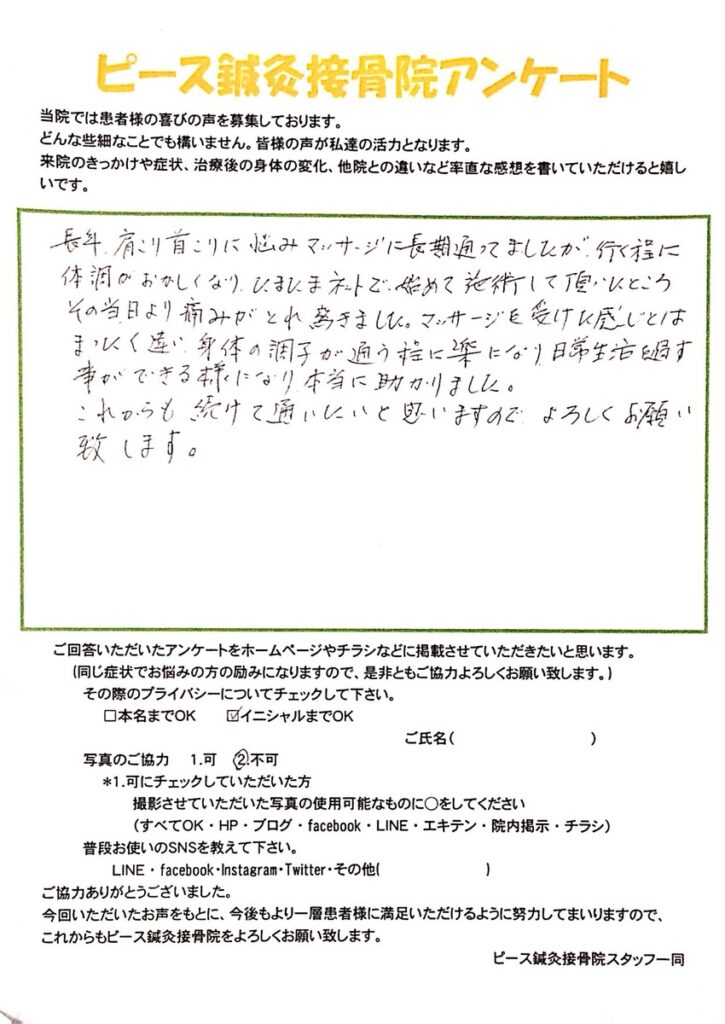 ピース鍼灸接骨院アンケート
当院では患者様の喜びの声を募集しております。
どんな些細なことでも構いません。皆様の声が私達の活力となります。
来院のきっかけや症状、治療後の身体の変化、他院との違いなど率直な感想を書いていただけると嬉し
いです。
長年、肩こり首こりに悩みマッサージに長期通ってましたが、行く程に
体調がおかしくなり、たまたまネットで、始めて施術して頂いたところ
その当日より痛みがとれ驚きました。マッサージを受けた感じとは
まったく違い、身体の調子が通う程に楽になり、日常生活を過す
事ができる様になり、本当に助かりました。
これからも続けて通いたいと思いますので、よろしくお願い
致します。
ご回答いただいたアンケートをホームページやチラシなどに掲載させていただきたいと思います。
(同じ症状でお悩みの方の励みになりますので、是非ともご協力よろしくお願い致します。)
その際のプライバシーについてチェックして下さい。
□本名までOK ☑イニシャルまでOK
ご氏名( )
写真のご協力 1.可 ②.不可
*1.可にチェックしていただいた方
撮影させていただいた写真の使用可能なものに○をしてください
(すべてOK・HP・ブログ・facebook・LINE・エキテン・院内掲示・チラシ)
普段お使いのSNSを教えて下さい。
LINE・facebook・Instagram・Twitter・その他( )
ご協力ありがとうございました。
今回いただいたお声をもとに、今後もより一層患者様に満足いただけるように努力してまいりますので、
これからもピース鍼灸接骨院をよろしくお願い致します。
ピース鍼灸接骨院スタッフ一同